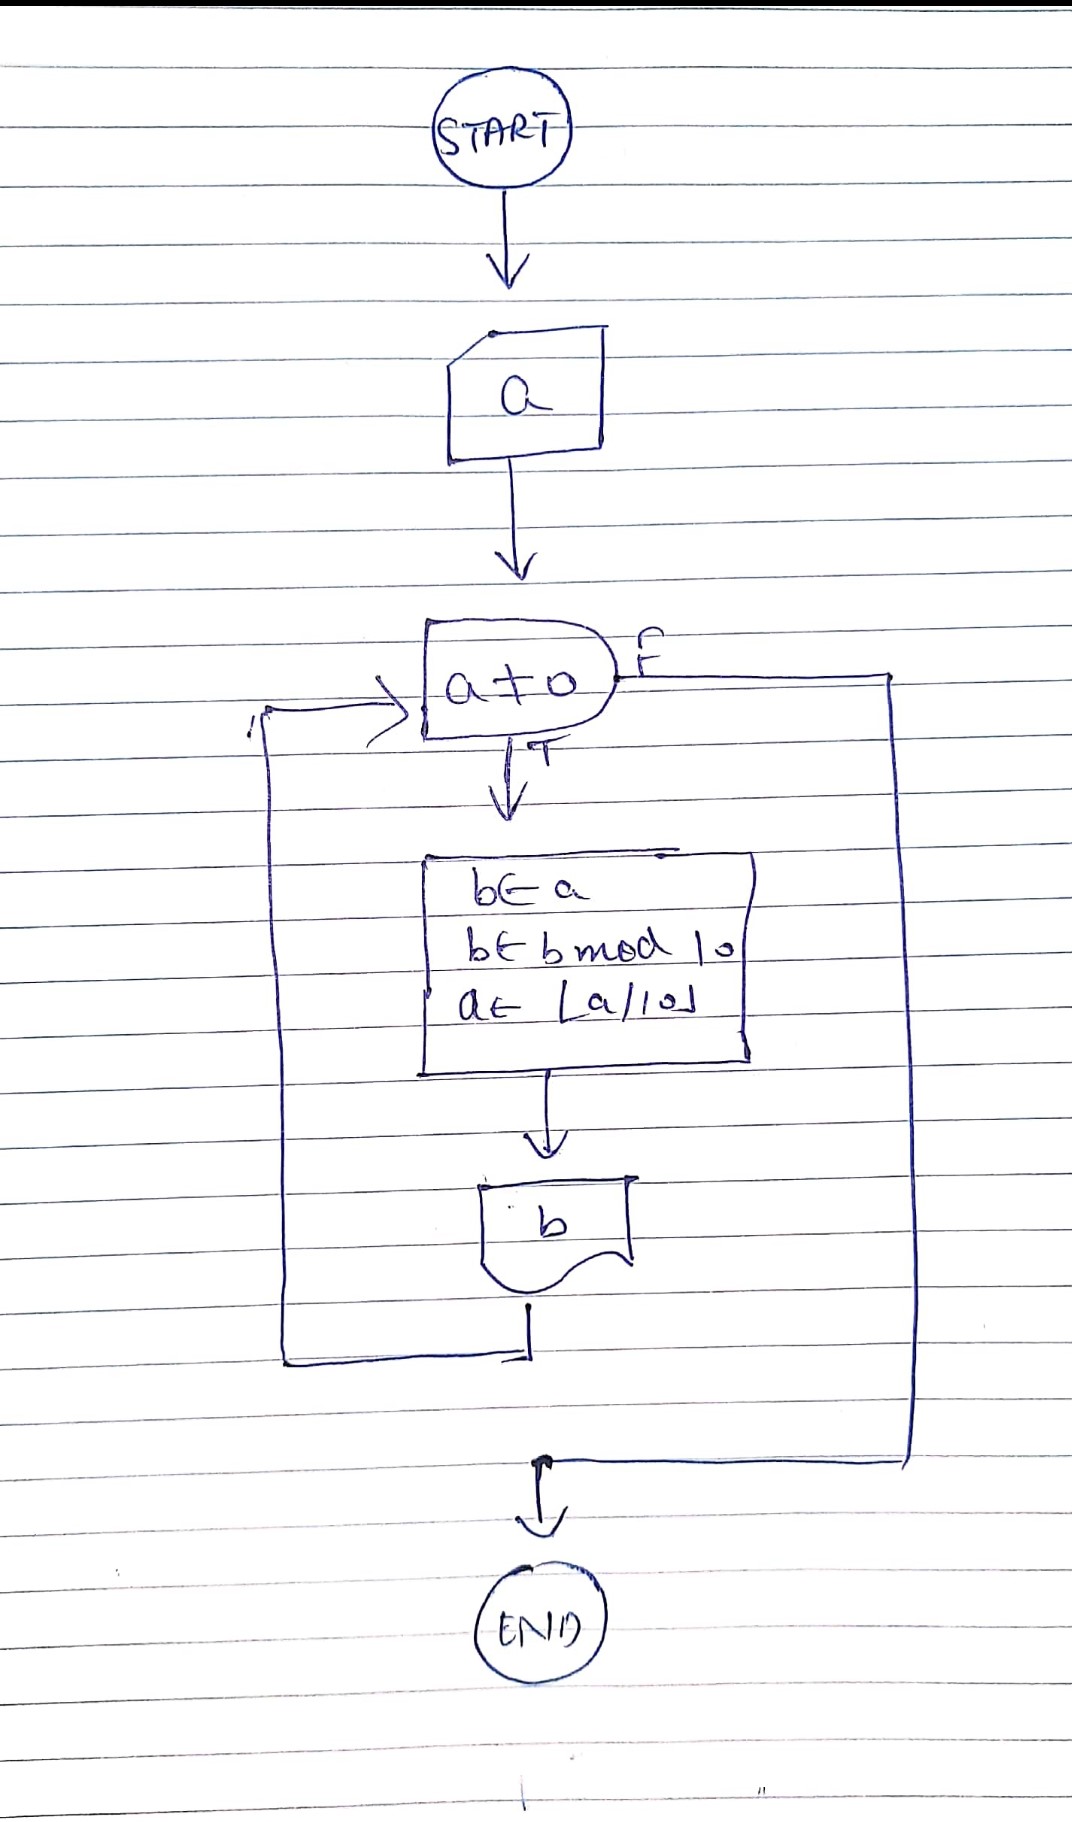 START
a
a ≠ 0
F
T
b ← a
b ← b mod 10
a ← ⌊a/10⌋
b
END